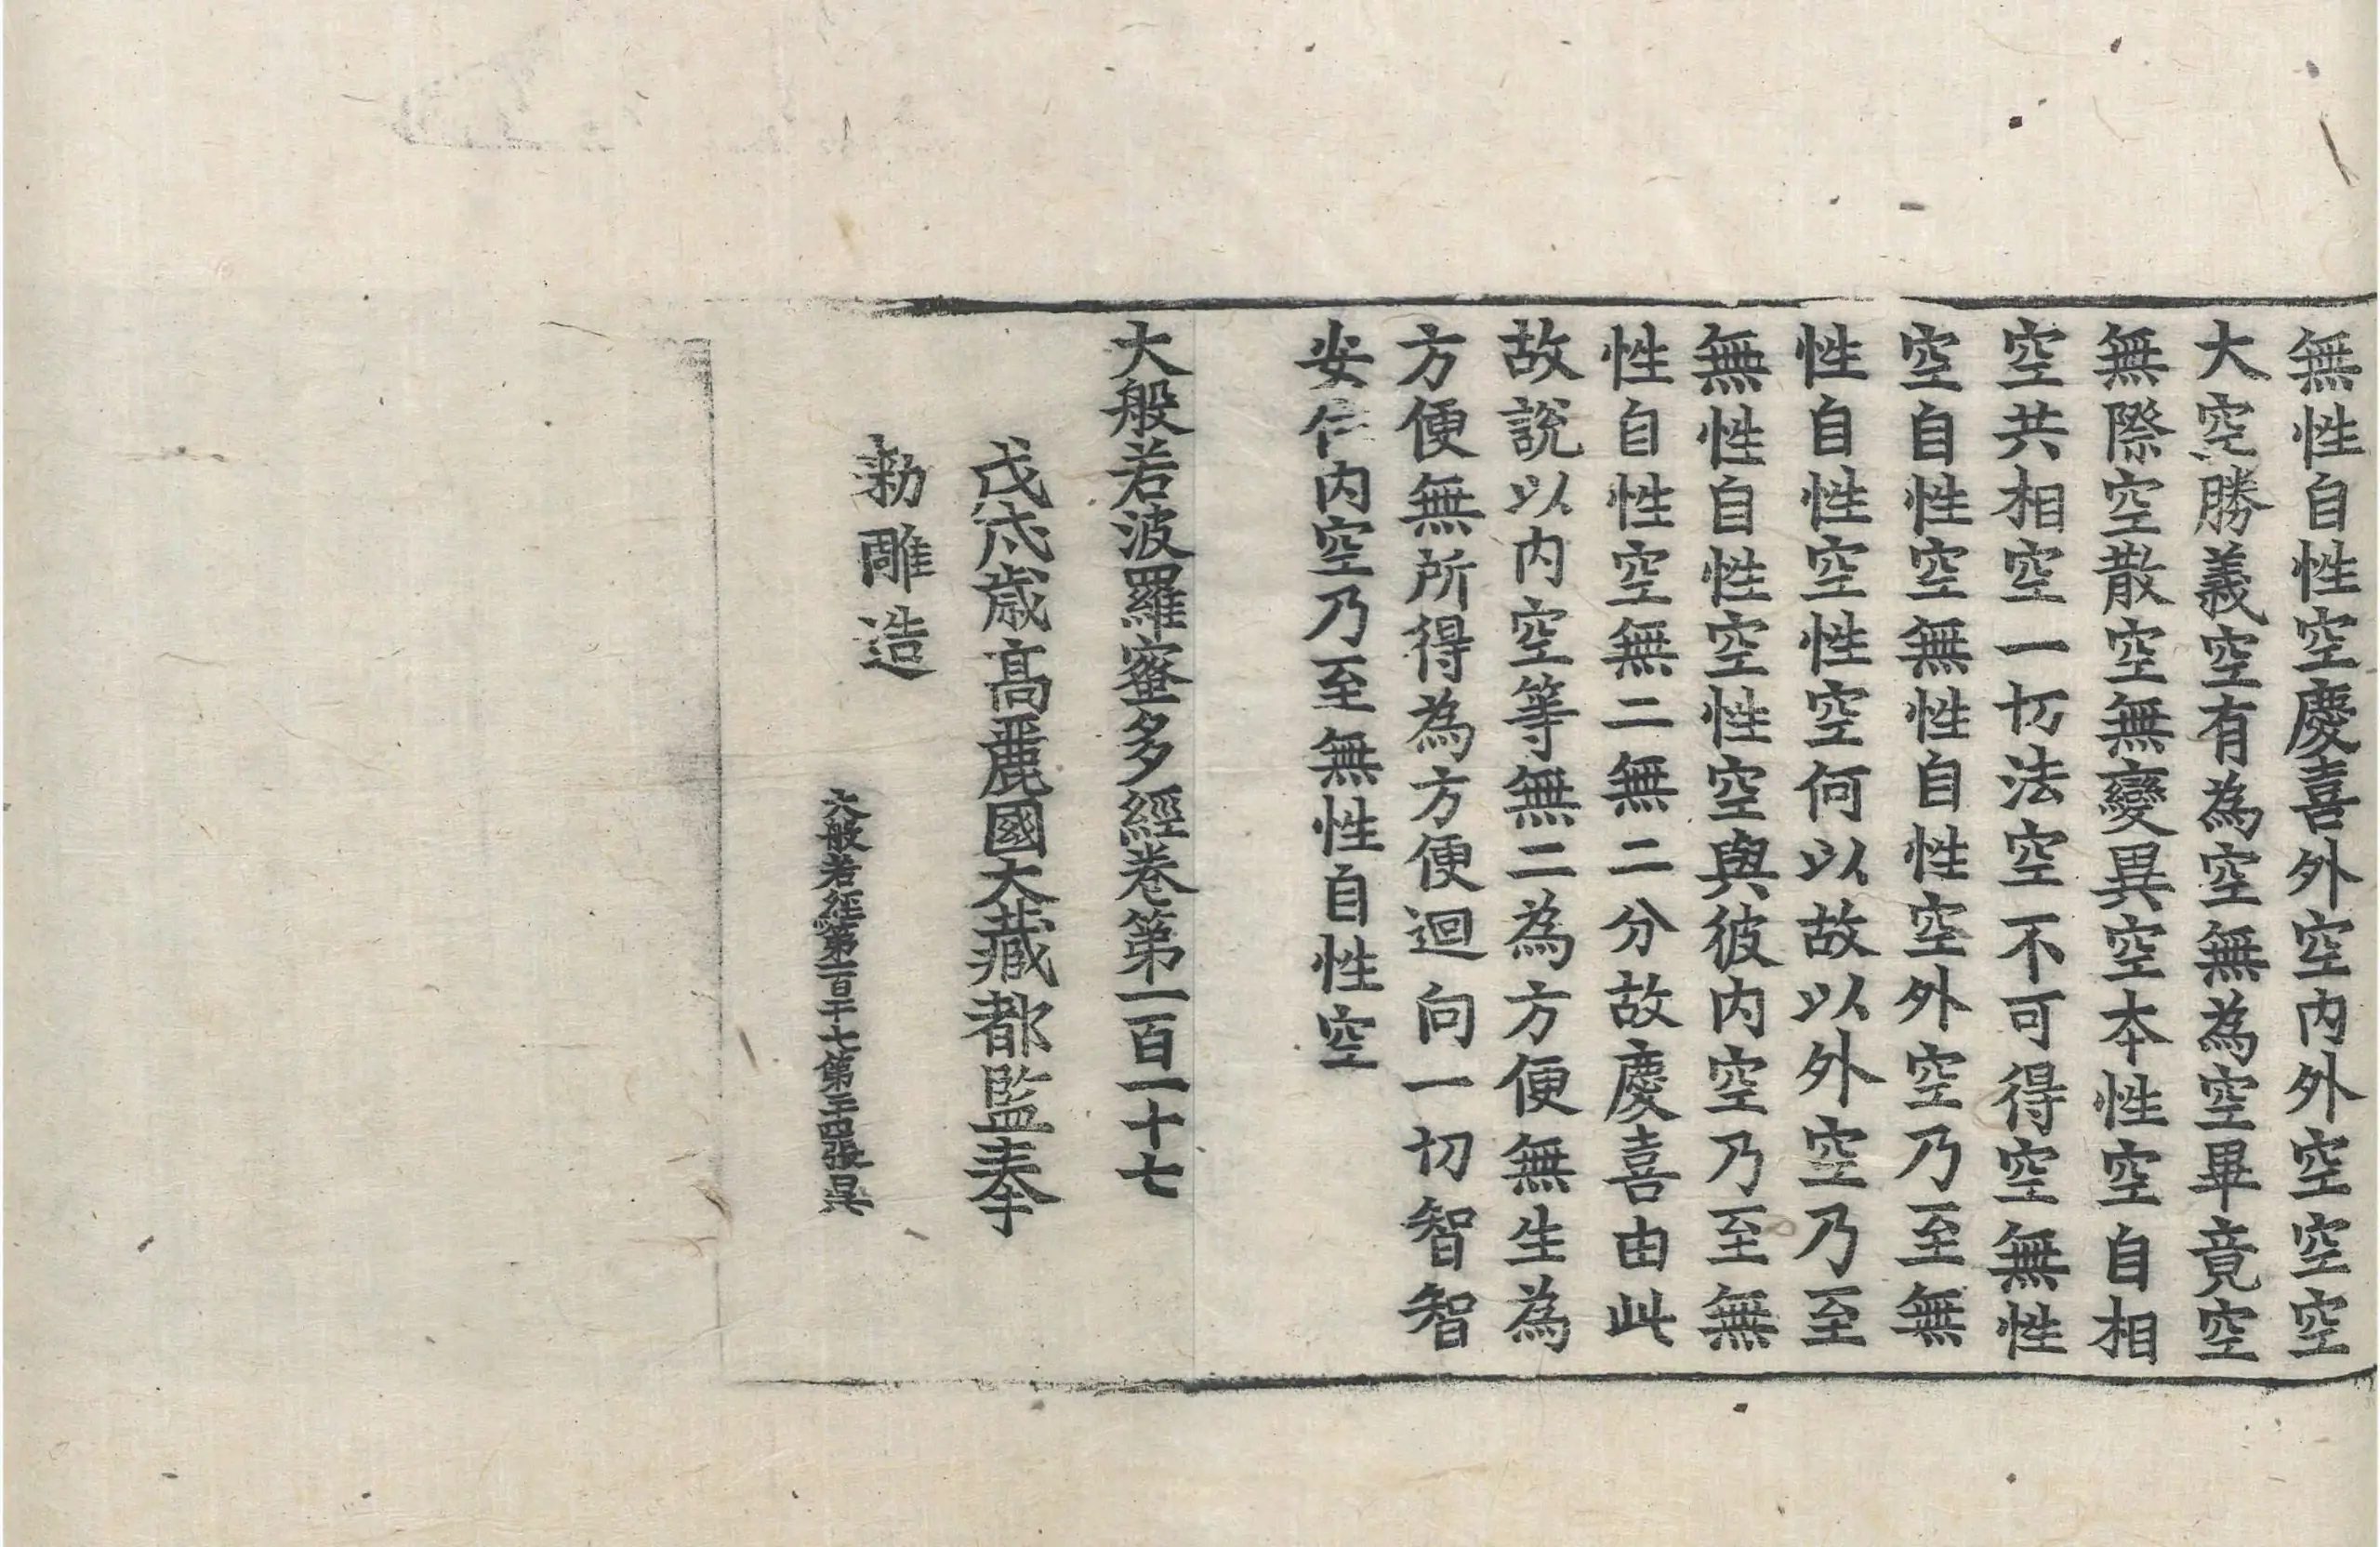 無性自性空慶喜外空内外空空空
大空勝義空有為空無為空畢竟空
無際空散空無變異空本性空自相
空共相空一切法空不可得空無性
空自性空無性自性空外空乃至無
性自性空性空何以故以外空乃至
無性自性空性空與彼内空乃至無
性自性空無二無二分故慶喜由此
故說以内空等無二為方便無生為
方便無所得為方便迴向一切智智
安住内空乃至無性自性空
大般若波羅蜜多經卷第一百一十七
戊戌歲高麗國大藏都監奉
勅雕造
大般若經第一百十七第二四張昃